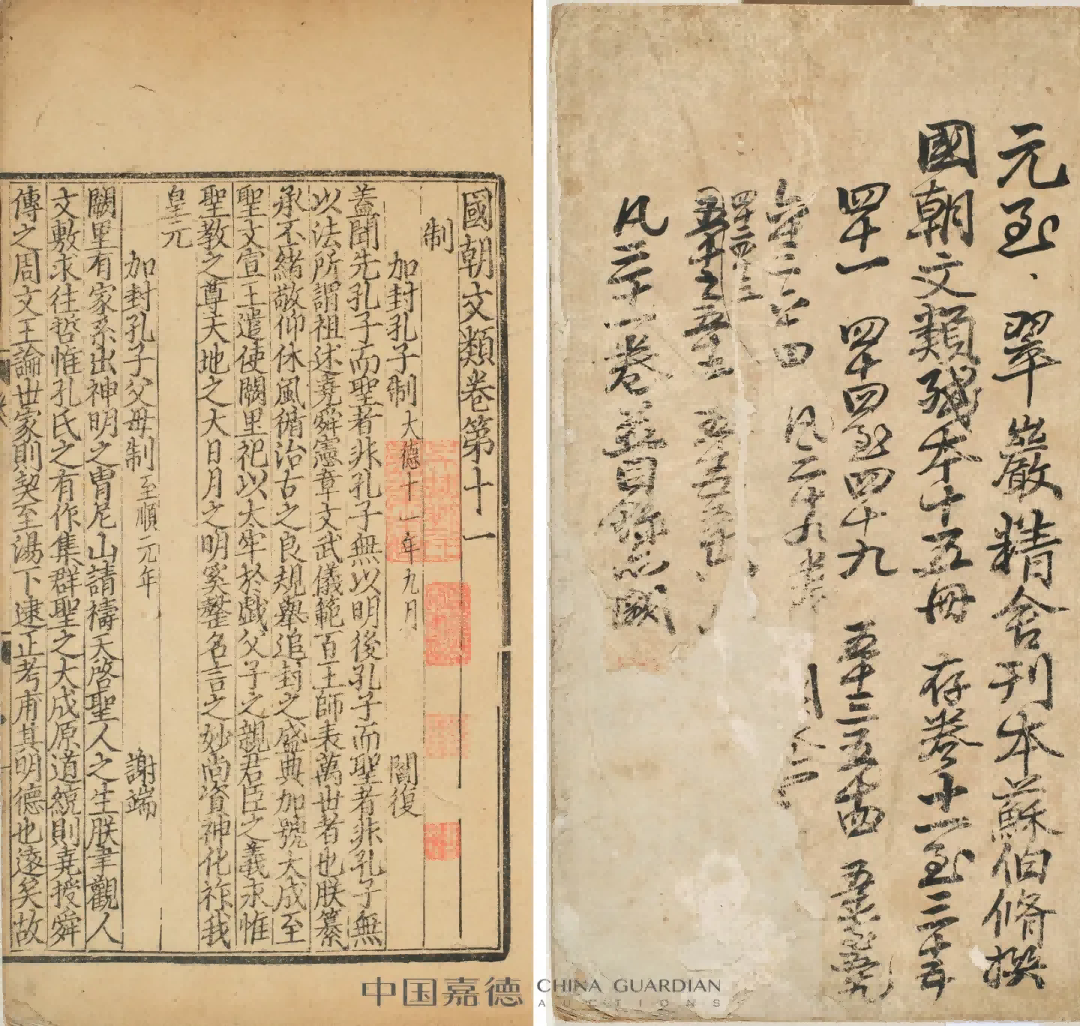 國朝文類卷第十一
制
加封孔子制 大德十一年九月 閻復
蓋聞先孔子而聖者非孔子無以明後孔子而聖者非孔子無
以法所謂祖述堯舜憲章文武儀範百王師表萬世者也朕纂
承丕緒敬仰休風循治古之良規舉追封之盛典加號大成至
聖文宣王遣使闕里祀以太牢於戲父子之親君臣之義永惟
聖教之尊天地之大日月之明奚罄名言之妙尚資神化祚我
皇元
加封孔子父母制 至順元年 謝端
闕里有家系出神明之胄尼山請禱天啓聖人之生朕聿觀人
文敷求往哲惟孔氏之有作集群聖之大成原道統則堯授舜
傳之周文王論世家則契至湯下逮正考甫其明德也遠矣故
元至 翠巖精舍刊本蘇伯脩撰
國朝文類殘本十五冊 存卷十一至二十五
四十一 四十四至四十九 五十三 五十四
凡二十九卷
凡三十一卷並目錄
中国嘉德 CHINA GUARDIAN
AUCTIONS